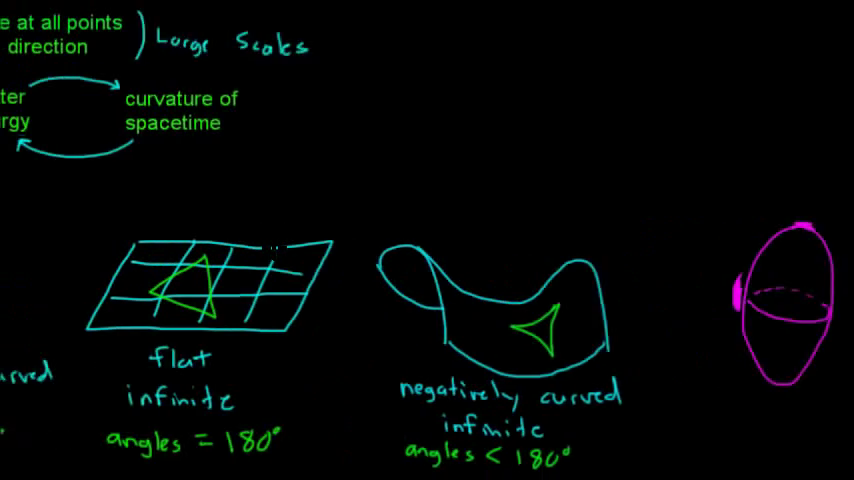 e at all points
direction
Large Scales
ter
rgy
curvature of
spacetime
flat
infinite
angles = 180°
negatively curved
infinite
angles < 180°
urved